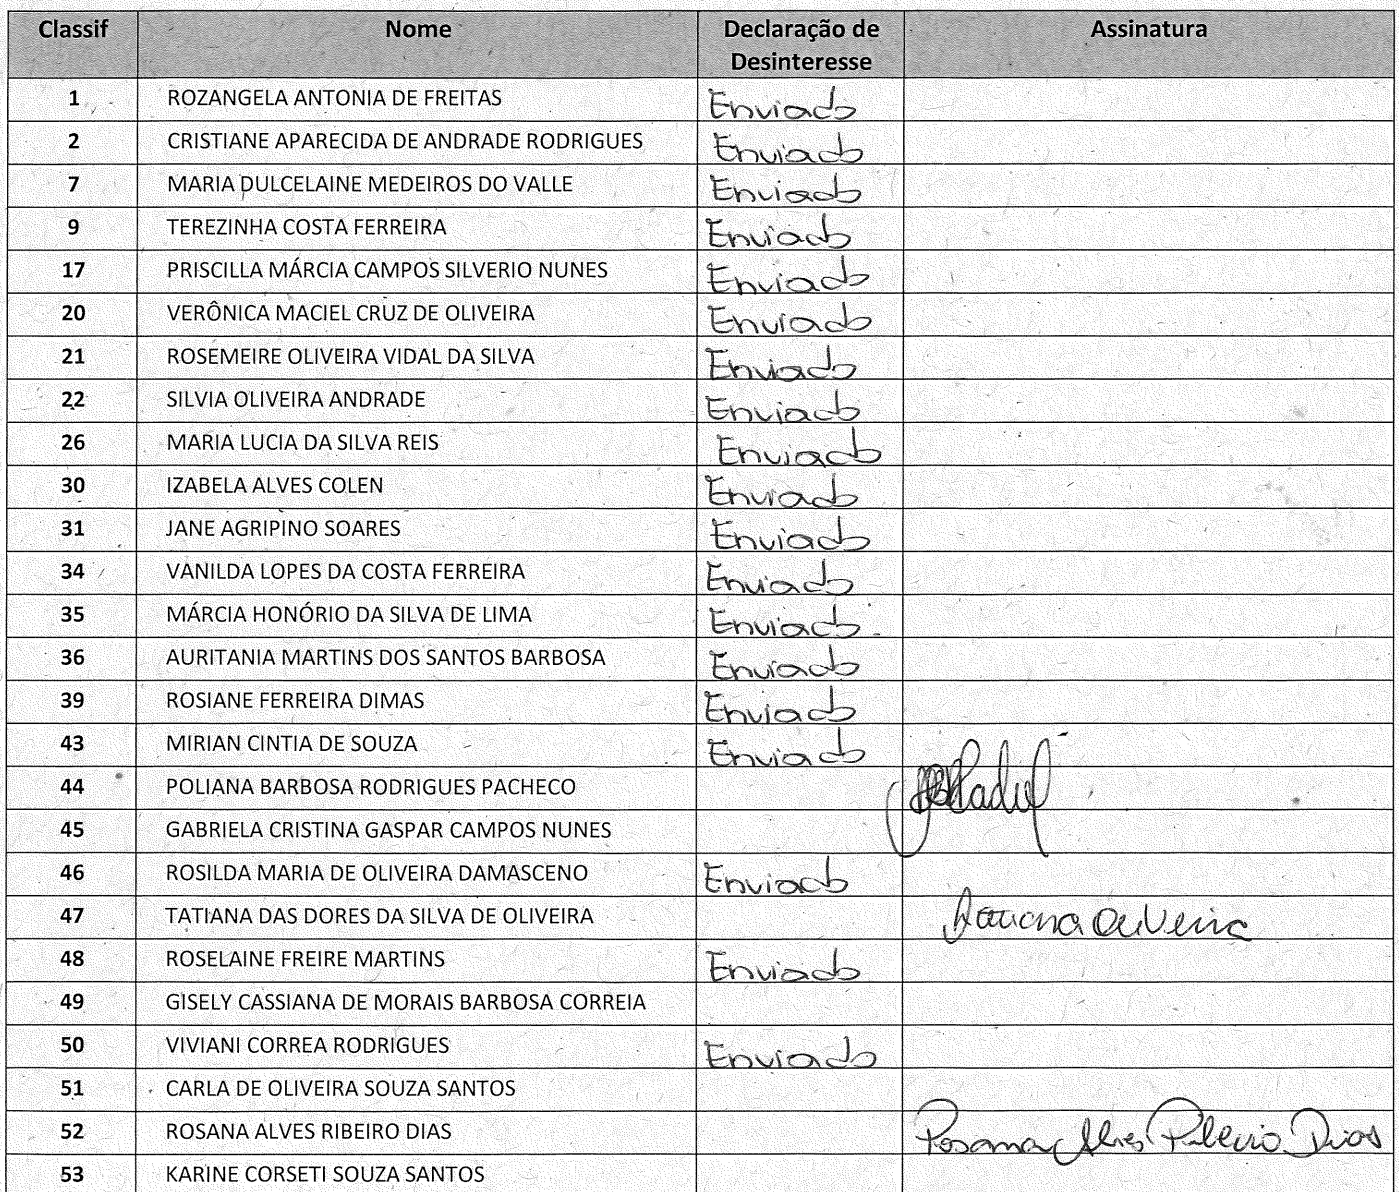 Classif Nome Declaração de Desinteresse Assinatura
1 ROZANGELA ANTONIA DE FREITAS Enviado
2 CRISTIANE APARECIDA DE ANDRADE RODRIGUES Enviado
7 MARIA DULCELAINE MEDEIROS DO VALLE Enviado
9 TEREZINHA COSTA FERREIRA Enviado
17 PRISCILLA MÁRCIA CAMPOS SILVERIO NUNES Enviado
20 VERÔNICA MACIEL CRUZ DE OLIVEIRA Enviado
21 ROSEMEIRE OLIVEIRA VIDAL DA SILVA Enviado
22 SILVIA OLIVEIRA ANDRADE Enviado
26 MARIA LUCIA DA SILVA REIS Enviado
30 IZABELA ALVES COLEN Enviado
31 JANE AGRIPINO SOARES Enviado
34 VANILDA LOPES DA COSTA FERREIRA Enviado
35 MÁRCIA HONÓRIO DA SILVA DE LIMA Enviado
36 AURITANIA MARTINS DOS SANTOS BARBOSA Enviado
39 ROSIANE FERREIRA DIMAS Enviado
43 MIRIAN CINTIA DE SOUZA Enviado
44 POLIANA BARBOSA RODRIGUES PACHECO
45 GABRIELA CRISTINA GASPAR CAMPOS NUNES
46 ROSILDA MARIA DE OLIVEIRA DAMASCENO Enviado
47 TATIANA DAS DORES DA SILVA DE OLIVEIRA Tatiana Oliveira
48 ROSELAINE FREIRE MARTINS Enviado
49 GISELY CASSIANA DE MORAIS BARBOSA CORREIA
50 VIVIANI CORREA RODRIGUES Enviado
51 CARLA DE OLIVEIRA SOUZA SANTOS
52 ROSANA ALVES RIBEIRO DIAS Rosana Alves Ribeiro Dias
53 KARINE CORSETI SOUZA SANTOS